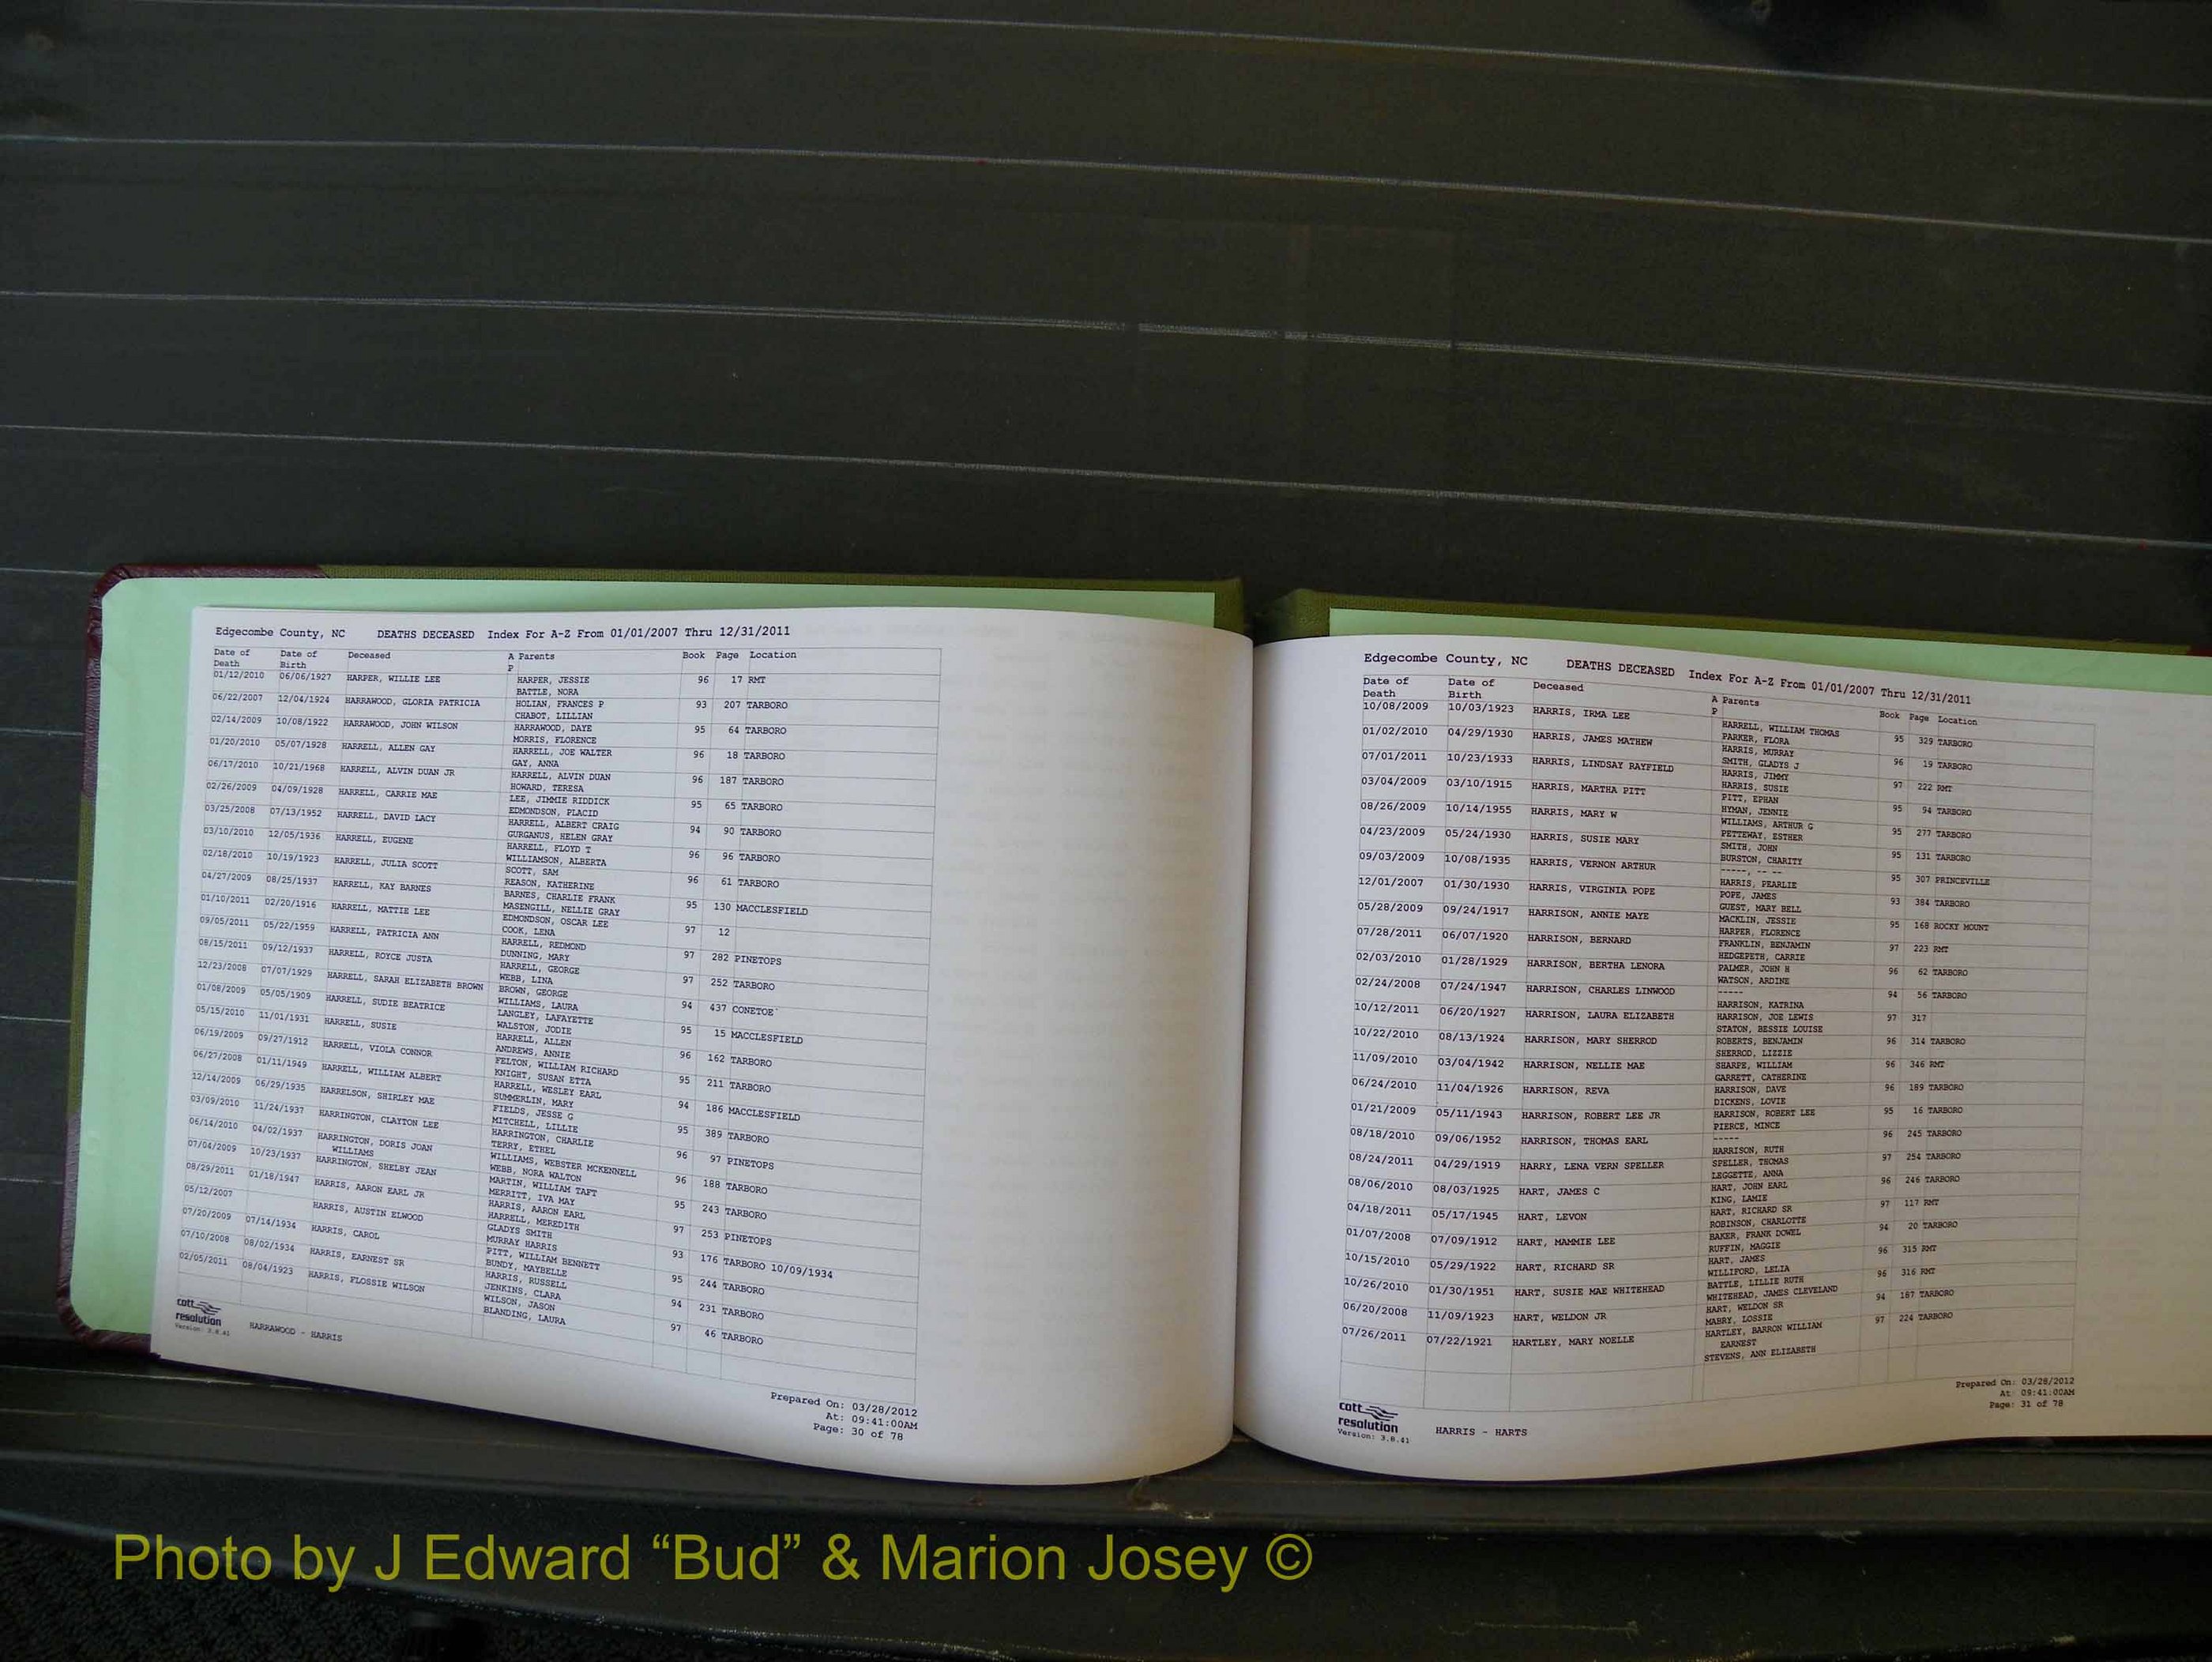 Edgecombe County, NC DEATHS DECEASED Index For A-Z From 01/01/2007 Thru 12/31/2011
Date of Death Date of Birth Deceased A P Parents Book Page Location
01/12/2010 06/06/1927 HARPER, WILLIE LEE HARPER, JESSIE 96 17 RMT
BATTLE, NORA
06/22/2007 12/04/1924 HARRAWOOD, GLORIA PATRICIA HOLIAN, FRANCES P 93 207 TARBORO
CHABOT, LILLIAN
02/14/2009 10/08/1922 HARRAWOOD, JOHN WILSON HARRAWOOD, DAYE 95 64 TARBORO
MORRIS, FLORENCE
01/20/2010 05/07/1928 HARRELL, ALLEN GAY HARRELL, JOE WALTER 96 18 TARBORO
GAY, ANNA
06/17/2010 10/21/1968 HARRELL, ALVIN DUAN JR HARRELL, ALVIN DUAN 96 187 TARBORO
HOWARD, TERESA
02/26/2009 04/09/1928 HARRELL, CARRIE MAE LEE, JIMMIE RIDDICK 95 65 TARBORO
EDMONDSON, PLACID
03/25/2008 07/13/1952 HARRELL, DAVID LACY HARRELL, ALBERT CRAIG 94 90 TARBORO
GURGANUS, HELEN GRAY
03/10/2010 12/05/1936 HARRELL, EUGENE HARRELL, FLOYD T 96 96 TARBORO
WILLIAMSON, ALBERTA
02/18/2010 10/19/1923 HARRELL, JULIA SCOTT SCOTT, SAM 96 61 TARBORO
REASON, KATHERINE
04/27/2009 08/25/1937 HARRELL, KAY BARNES BARNES, CHARLIE FRANK 95 130 MACCLESFIELD
MASENGILL, NELLIE GRAY
01/10/2011 02/20/1916 HARRELL, MATTIE LEE EDMONDSON, OSCAR LEE 97 12
COOK, LENA
09/05/2011 05/22/1959 HARRELL, PATRICIA ANN HARRELL, REDMOND 97 282 PINETOPS
DUNNING, MARY
08/15/2011 09/12/1937 HARRELL, ROYCE JUSTA HARRELL, GEORGE 97 252 TARBORO
WEBB, LINA
12/23/2008 07/07/1929 HARRELL, SARAH ELIZABETH BROWN BROWN, GEORGE 94 437 CONETOE
WILLIAMS, LAURA
01/08/2009 05/05/1909 HARRELL, SUDIE BEATRICE LANGLEY, LAFAYETTE 95 15 MACCLESFIELD
WALSTON, JODIE
05/15/2010 11/01/1931 HARRELL, SUSIE HARRELL, ALLEN 96 162 TARBORO
ANDREWS, ANNIE
06/19/2009 09/27/1912 HARRELL, VIOLA CONNOR FELTON, WILLIAM RICHARD 95 211 TARBORO
KNIGHT, SUSAN ETTA
06/27/2008 01/11/1949 HARRELL, WILLIAM ALBERT HARRELL, WESLEY EARL 94 186 MACCLESFIELD
SUMMERLIN, MARY
12/14/2009 06/29/1935 HARRELSON, SHIRLEY MAE FIELDS, JESSE G 95 389 TARBORO
MITCHELL, LILLIE
03/09/2010 11/24/1937 HARRINGTON, CLAYTON LEE HARRINGTON, CHARLIE 96 97 PINETOPS
TERRY, ETHEL
06/14/2010 04/02/1937 HARRINGTON, DORIS JOAN WILLIAMS WILLIAMS, WEBSTER MCKENNELL 96 188 TARBORO
WEBB, NORA WALTON
07/04/2009 10/23/1937 HARRINGTON, SHELBY JEAN MARTIN, WILLIAM TAFT 95 243 TARBORO
MERRITT, IVA MAY
08/29/2011 01/18/1947 HARRIS, AARON EARL JR HARRIS, AARON EARL 97 253 PINETOPS
HARRELL, MEREDITH
05/12/2007 HARRIS, AUSTIN ELWOOD GLADYS SMITH 93 176 TARBORO 10/09/1934
MURRAY HARRIS
07/20/2009 07/14/1934 HARRIS, CAROL PITT, WILLIAM BENNETT 95 244 TARBORO
BUNDY, MAYBELLE
07/10/2008 08/02/1934 HARRIS, EARNEST SR HARRIS, RUSSELL 94 231 TARBORO
JENKINS, CLARA
02/05/2011 08/04/1923 HARRIS, FLOSSIE WILSON WILSON, JASON 97 46 TARBORO
BLANDING, LAURA
cott
resolution
Version: 3.8.41
HARRAWOOD - HARRIS
Prepared On: 03/28/2012
At: 09:41:00AM
Page: 30 of 78
Edgecombe County, NC DEATHS DECEASED Index For A-Z From 01/01/2007 Thru 12/31/2011
Date of Death Date of Birth Deceased A P Parents Book Page Location
10/08/2009 10/03/1923 HARRIS, IRMA LEE HARRELL, WILLIAM THOMAS 95 329 TARBORO
PARKER, FLORA
01/02/2010 04/29/1930 HARRIS, JAMES MATHEW HARRIS, MURRAY 96 19 TARBORO
SMITH, GLADYS J
07/01/2011 10/23/1933 HARRIS, LINDSAY RAYFIELD HARRIS, JIMMY 97 222 RMT
HARRIS, SUSIE
03/04/2009 03/10/1915 HARRIS, MARTHA PITT PITT, EPHAN 95 94 TARBORO
HYMAN, JENNIE
08/26/2009 10/14/1955 HARRIS, MARY W WILLIAMS, ARTHUR G 95 277 TARBORO
PETTEWAY, ESTHER
04/23/2009 05/24/1930 HARRIS, SUSIE MARY SMITH, JOHN 95 131 TARBORO
BURSTON, CHARITY
09/03/2009 10/08/1935 HARRIS, VERNON ARTHUR -----, -- -- 95 307 PRINCEVILLE
HARRIS, PEARLIE
12/01/2007 01/30/1930 HARRIS, VIRGINIA POPE POPE, JAMES 93 384 TARBORO
GUEST, MARY BELL
05/28/2009 09/24/1917 HARRISON, ANNIE MAYE MACKLIN, JESSIE 95 168 ROCKY MOUNT
HARPER, FLORENCE
07/28/2011 06/07/1920 HARRISON, BERNARD FRANKLIN, BENJAMIN 97 223 RMT
HEDGEPETH, CARRIE
02/03/2010 01/28/1929 HARRISON, BERTHA LENORA PALMER, JOHN H 96 62 TARBORO
WATSON, ARDINE
02/24/2008 07/24/1947 HARRISON, CHARLES LINWOOD ----- 94 56 TARBORO
HARRISON, KATRINA
10/12/2011 06/20/1927 HARRISON, LAURA ELIZABETH HARRISON, JOE LEWIS 97 317
STATON, BESSIE LOUISE
10/22/2010 08/13/1924 HARRISON, MARY SHERROD ROBERTS, BENJAMIN 96 314 TARBORO
SHERROD, LIZZIE
11/09/2010 03/04/1942 HARRISON, NELLIE MAE SHARPE, WILLIAM 96 346 RMT
GARRETT, CATHERINE
06/24/2010 11/04/1926 HARRISON, REVA HARRISON, DAVE 96 189 TARBORO
DICKENS, LOVIE
01/21/2009 05/11/1943 HARRISON, ROBERT LEE JR HARRISON, ROBERT LEE 95 16 TARBORO
PIERCE, MINCE
08/18/2010 09/06/1952 HARRISON, THOMAS EARL ----- 96 245 TARBORO
HARRISON, RUTH
08/24/2011 04/29/1919 HARRY, LENA VERN SPELLER SPELLER, THOMAS 97 254 TARBORO
LEGGETTE, ANNA
08/06/2010 08/03/1925 HART, JAMES C HART, JOHN EARL 96 246 TARBORO
KING, LAMIE
04/18/2011 05/17/1945 HART, LEVON HART, RICHARD SR 97 117 RMT
ROBINSON, CHARLOTTE
01/07/2008 07/09/1912 HART, MAMMIE LEE BAKER, FRANK DOWEL 94 20 TARBORO
RUFFIN, MAGGIE
10/15/2010 05/29/1922 HART, RICHARD SR HART, JAMES 96 315 RMT
WILLIFORD, LELIA
10/26/2010 01/30/1951 HART, SUSIE MAE WHITEHEAD BATTLE, LILLIE RUTH 96 316 RMT
WHITEHEAD, JAMES CLEVELAND
06/20/2008 11/09/1923 HART, WELDON JR HART, WELDON SR 94 187 TARBORO
MABRY, LOSSIE
07/26/2011 07/22/1921 HARTLEY, MARY NOELLE HARTLEY, BARRON WILLIAM EARNEST 97 224 TARBORO
STEVENS, ANN ELIZABETH
cott
resolution
Version: 3.8.41
HARRIS - HARTS
Prepared On: 03/28/2012
At: 09:41:00AM
Page: 31 of 78
Photo by J Edward “Bud” & Marion Josey ©